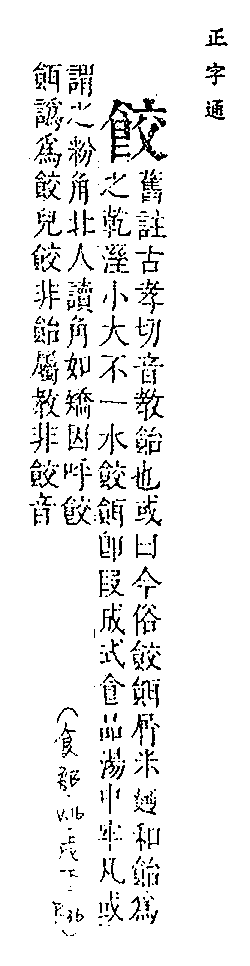 正字通
餃
舊註古孝切音教飴也或曰今俗餃餌屑米麪和飴爲
之乾溼小大不一水餃餌卽段成式食品湯中牢凡或
謂之粉角北人讀角如矯因呼餃
餌譌爲餃兒餃非飴屬教非餃音
(食部